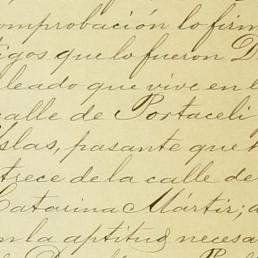 comprobación lo firm
tigos que lo fueron D
leado que vive en l
calle de Portaceli
Islas, pasante que
trece de la calle de
Catarina Mártir; a
on la aptitud necesa